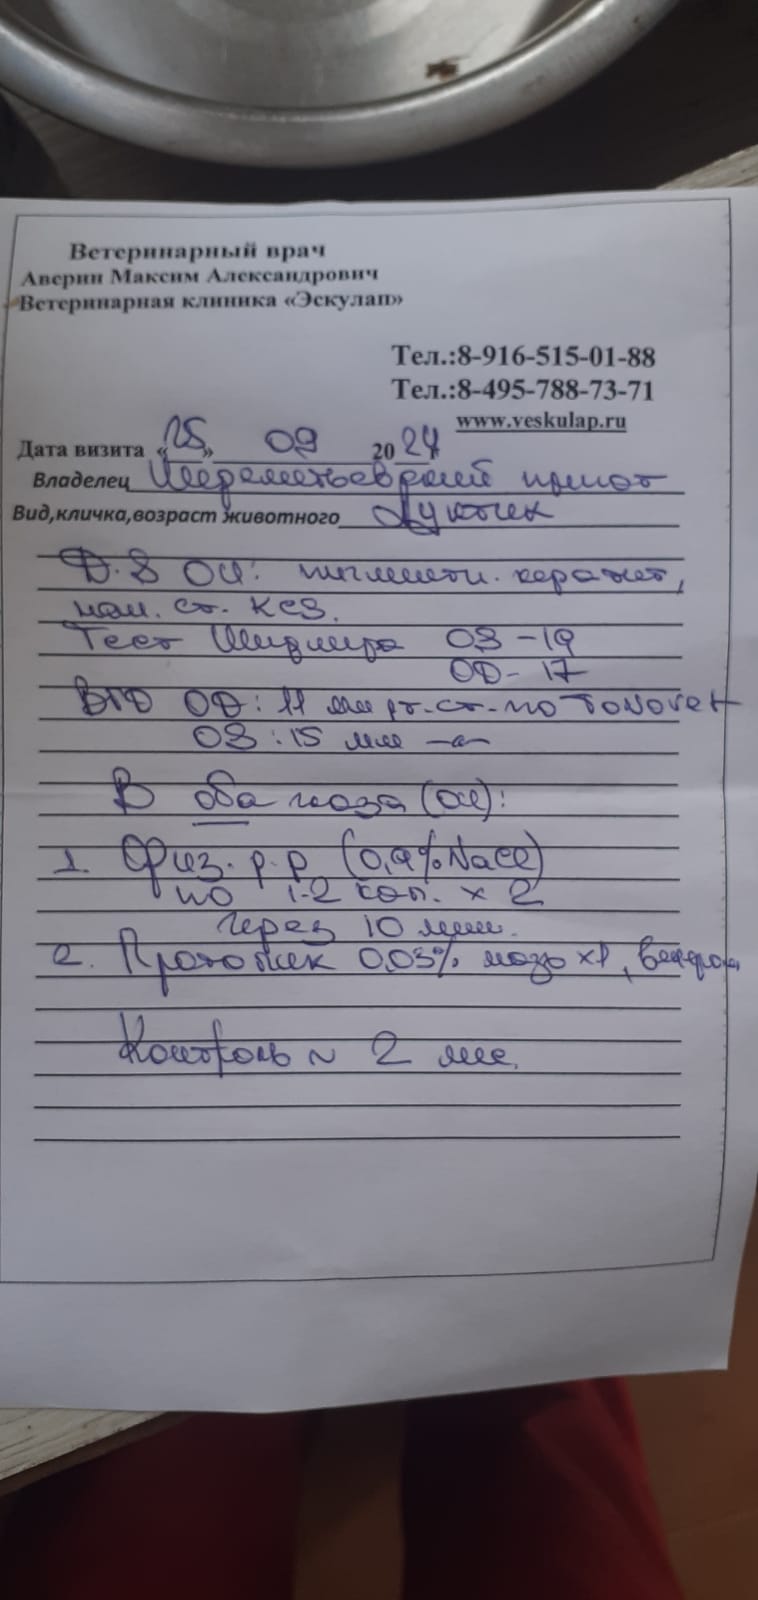 Ветеринарный врач
Аверин Максим Александрович
Ветеринарная клиника «Эскулап»
Тел.:8-916-515-01-88
Тел.:8-495-788-73-71
www.veskulap.ru
Дата визита «25» 09 2024
Владелец Шереметьевский приют
Вид,кличка,возраст животного
D.S OU: пигментн. кератит,
нач. ст. KCS.
Тест Ширмера OS - 19
OD - 17
ВГД OD: 11 мм рт.ст. по Tonovet
OS: 15 мм -"-
В оба глаза (OU):
1. Физ. р-р (0,9% NaCl)
по 1-2 кап. x 2
через 10 мин.
2. Протопик 0,03% мазь x1, вечером
Контроль ~ 2 мес.